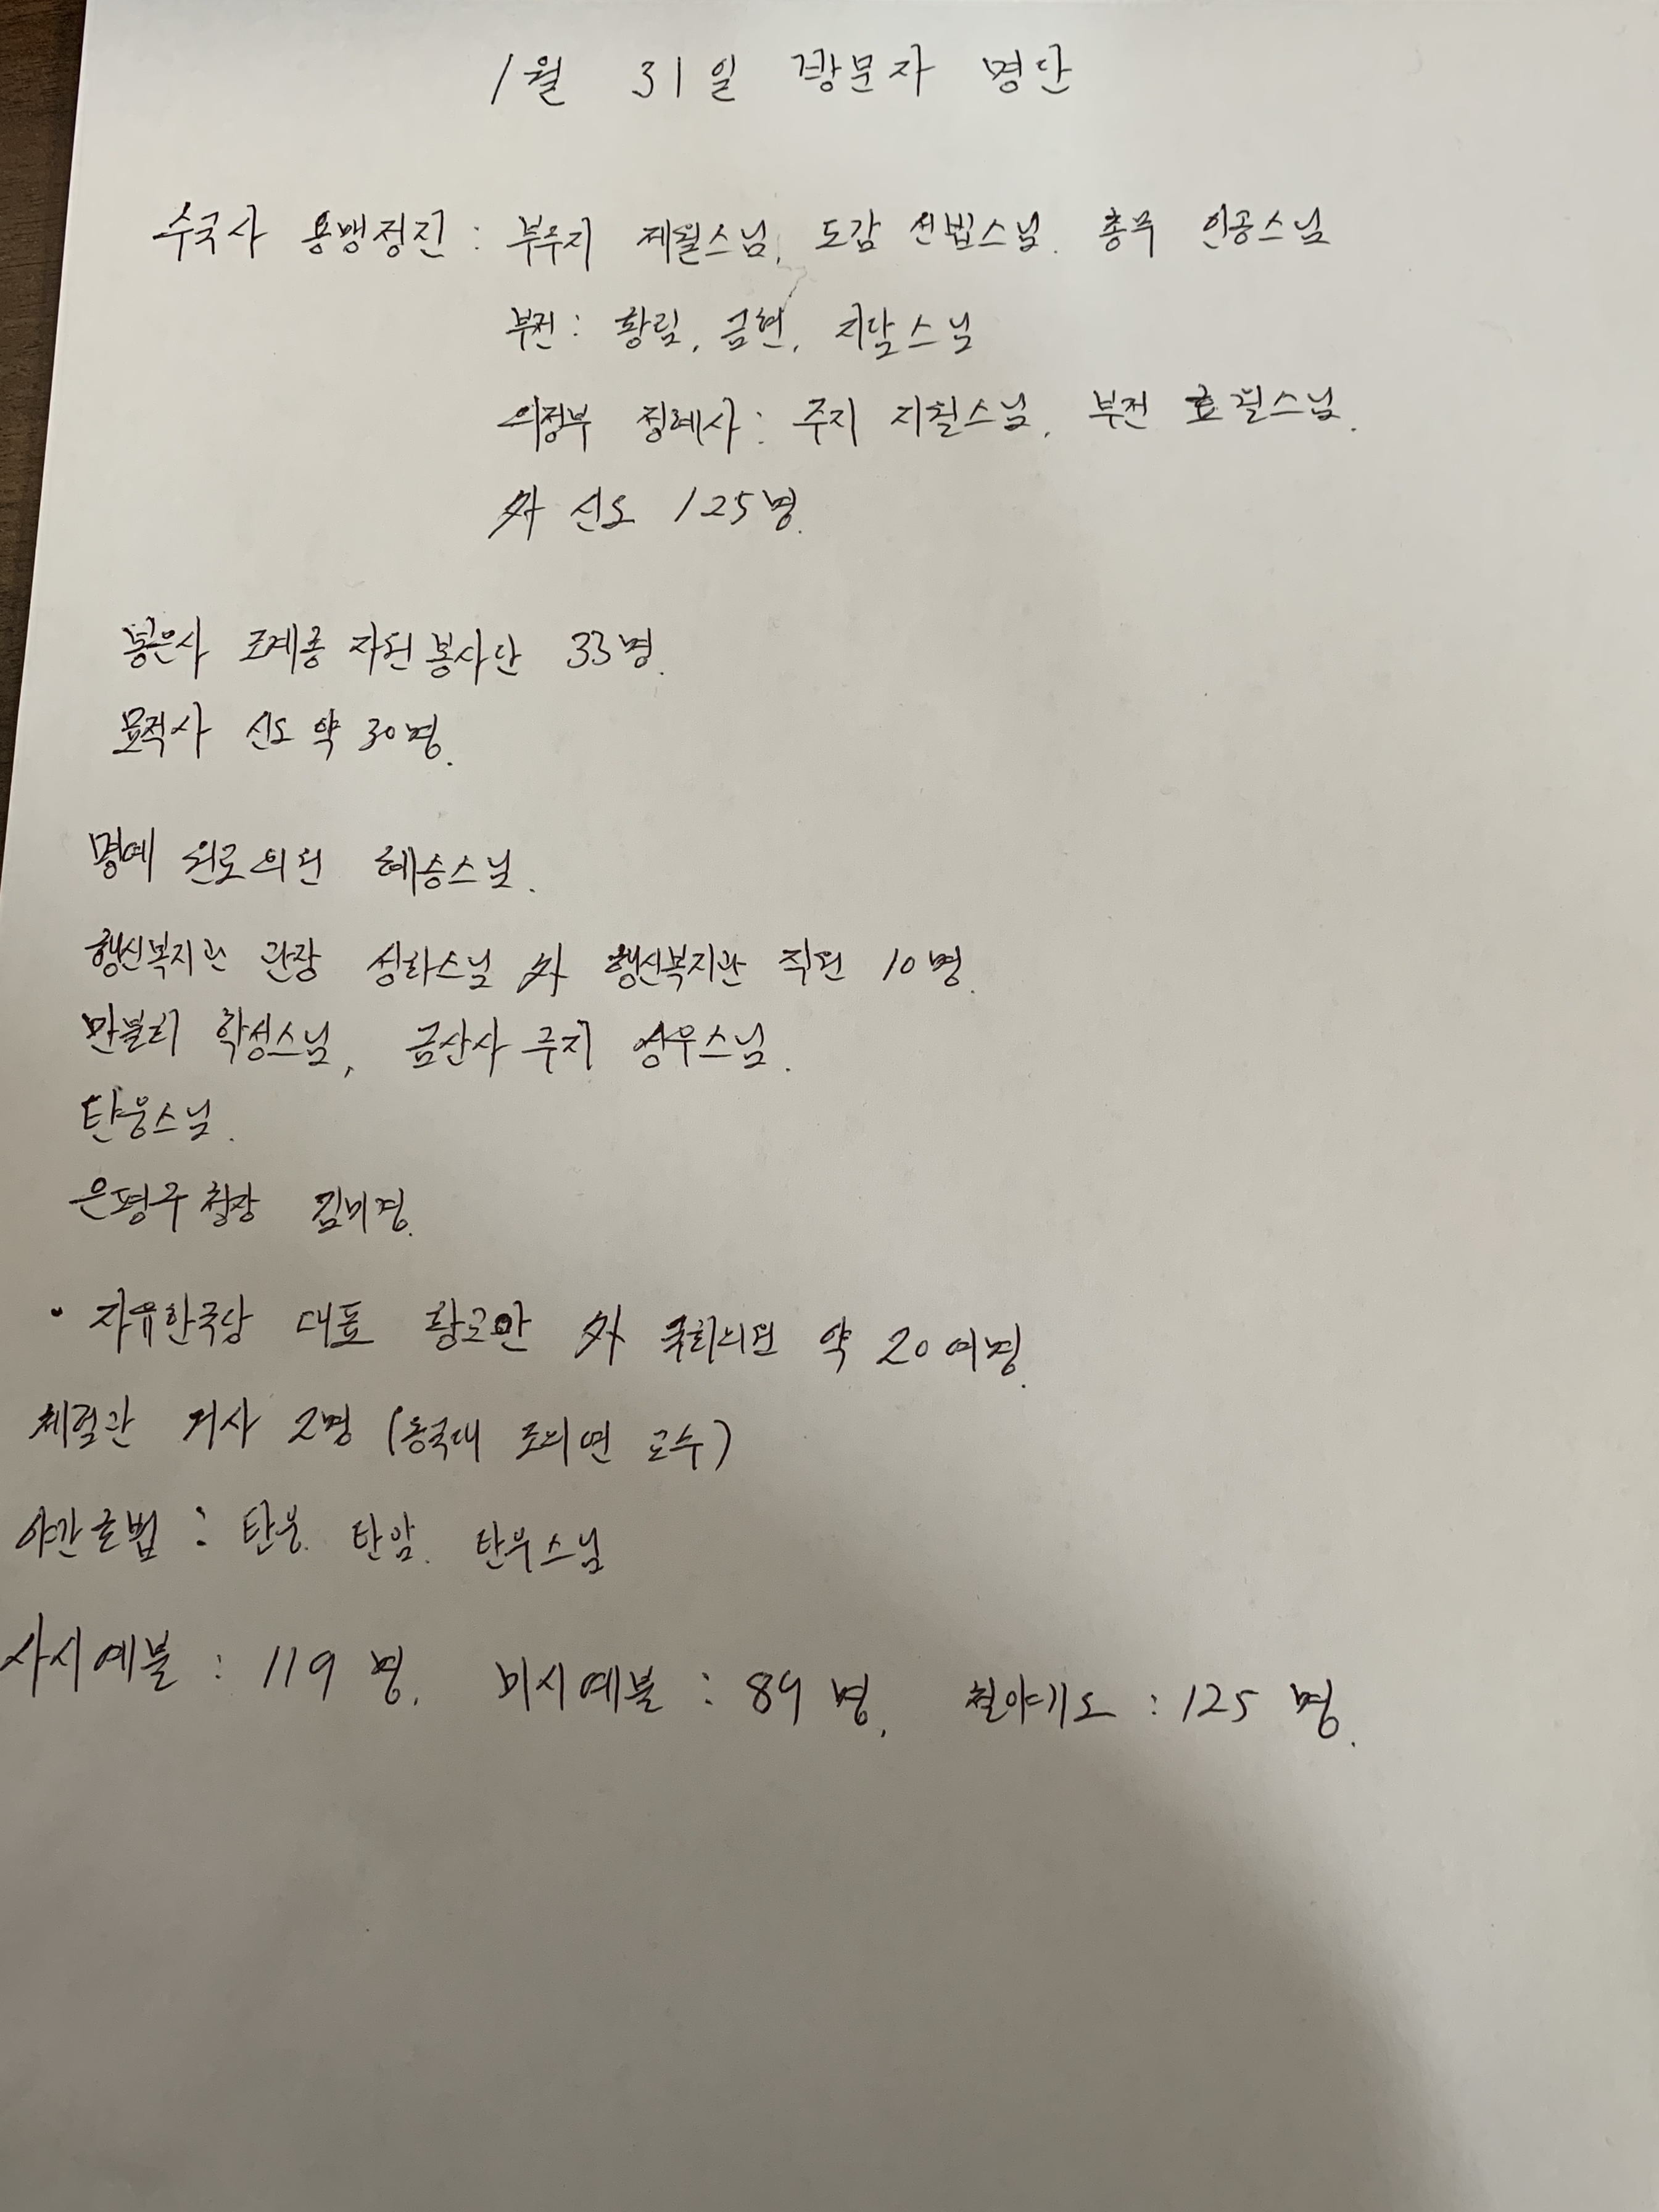 1월 31일 방문자 명단
수국사 용맹정진 : 부주지 제월스님, 도감 선법스님. 총무 인공스님
부전 : 황림, 금현, 지남스님
의정부 정혜사 : 주지 지철스님, 부전 효월스님.
外 신도 125명.
봉은사 조계종 자원봉사단 33명.
묘적사 신도 약 30명.
명예 원로의원 혜승스님.
행신복지관 관장 성화스님 外 행신복지관 직원 10명.
만불리 학성스님, 금산사 주지 상우스님.
탄웅스님.
은평구청장 김미경.
• 자유한국당 대표 황교안 外 국회의원 약 20여명.
체험관 거사 2명 (동국대 조의연 교수)
야간호법 : 탄웅. 탄암. 탄우스님
사시예불 : 119명. 미시예불 : 89명. 철야기도 : 125명.